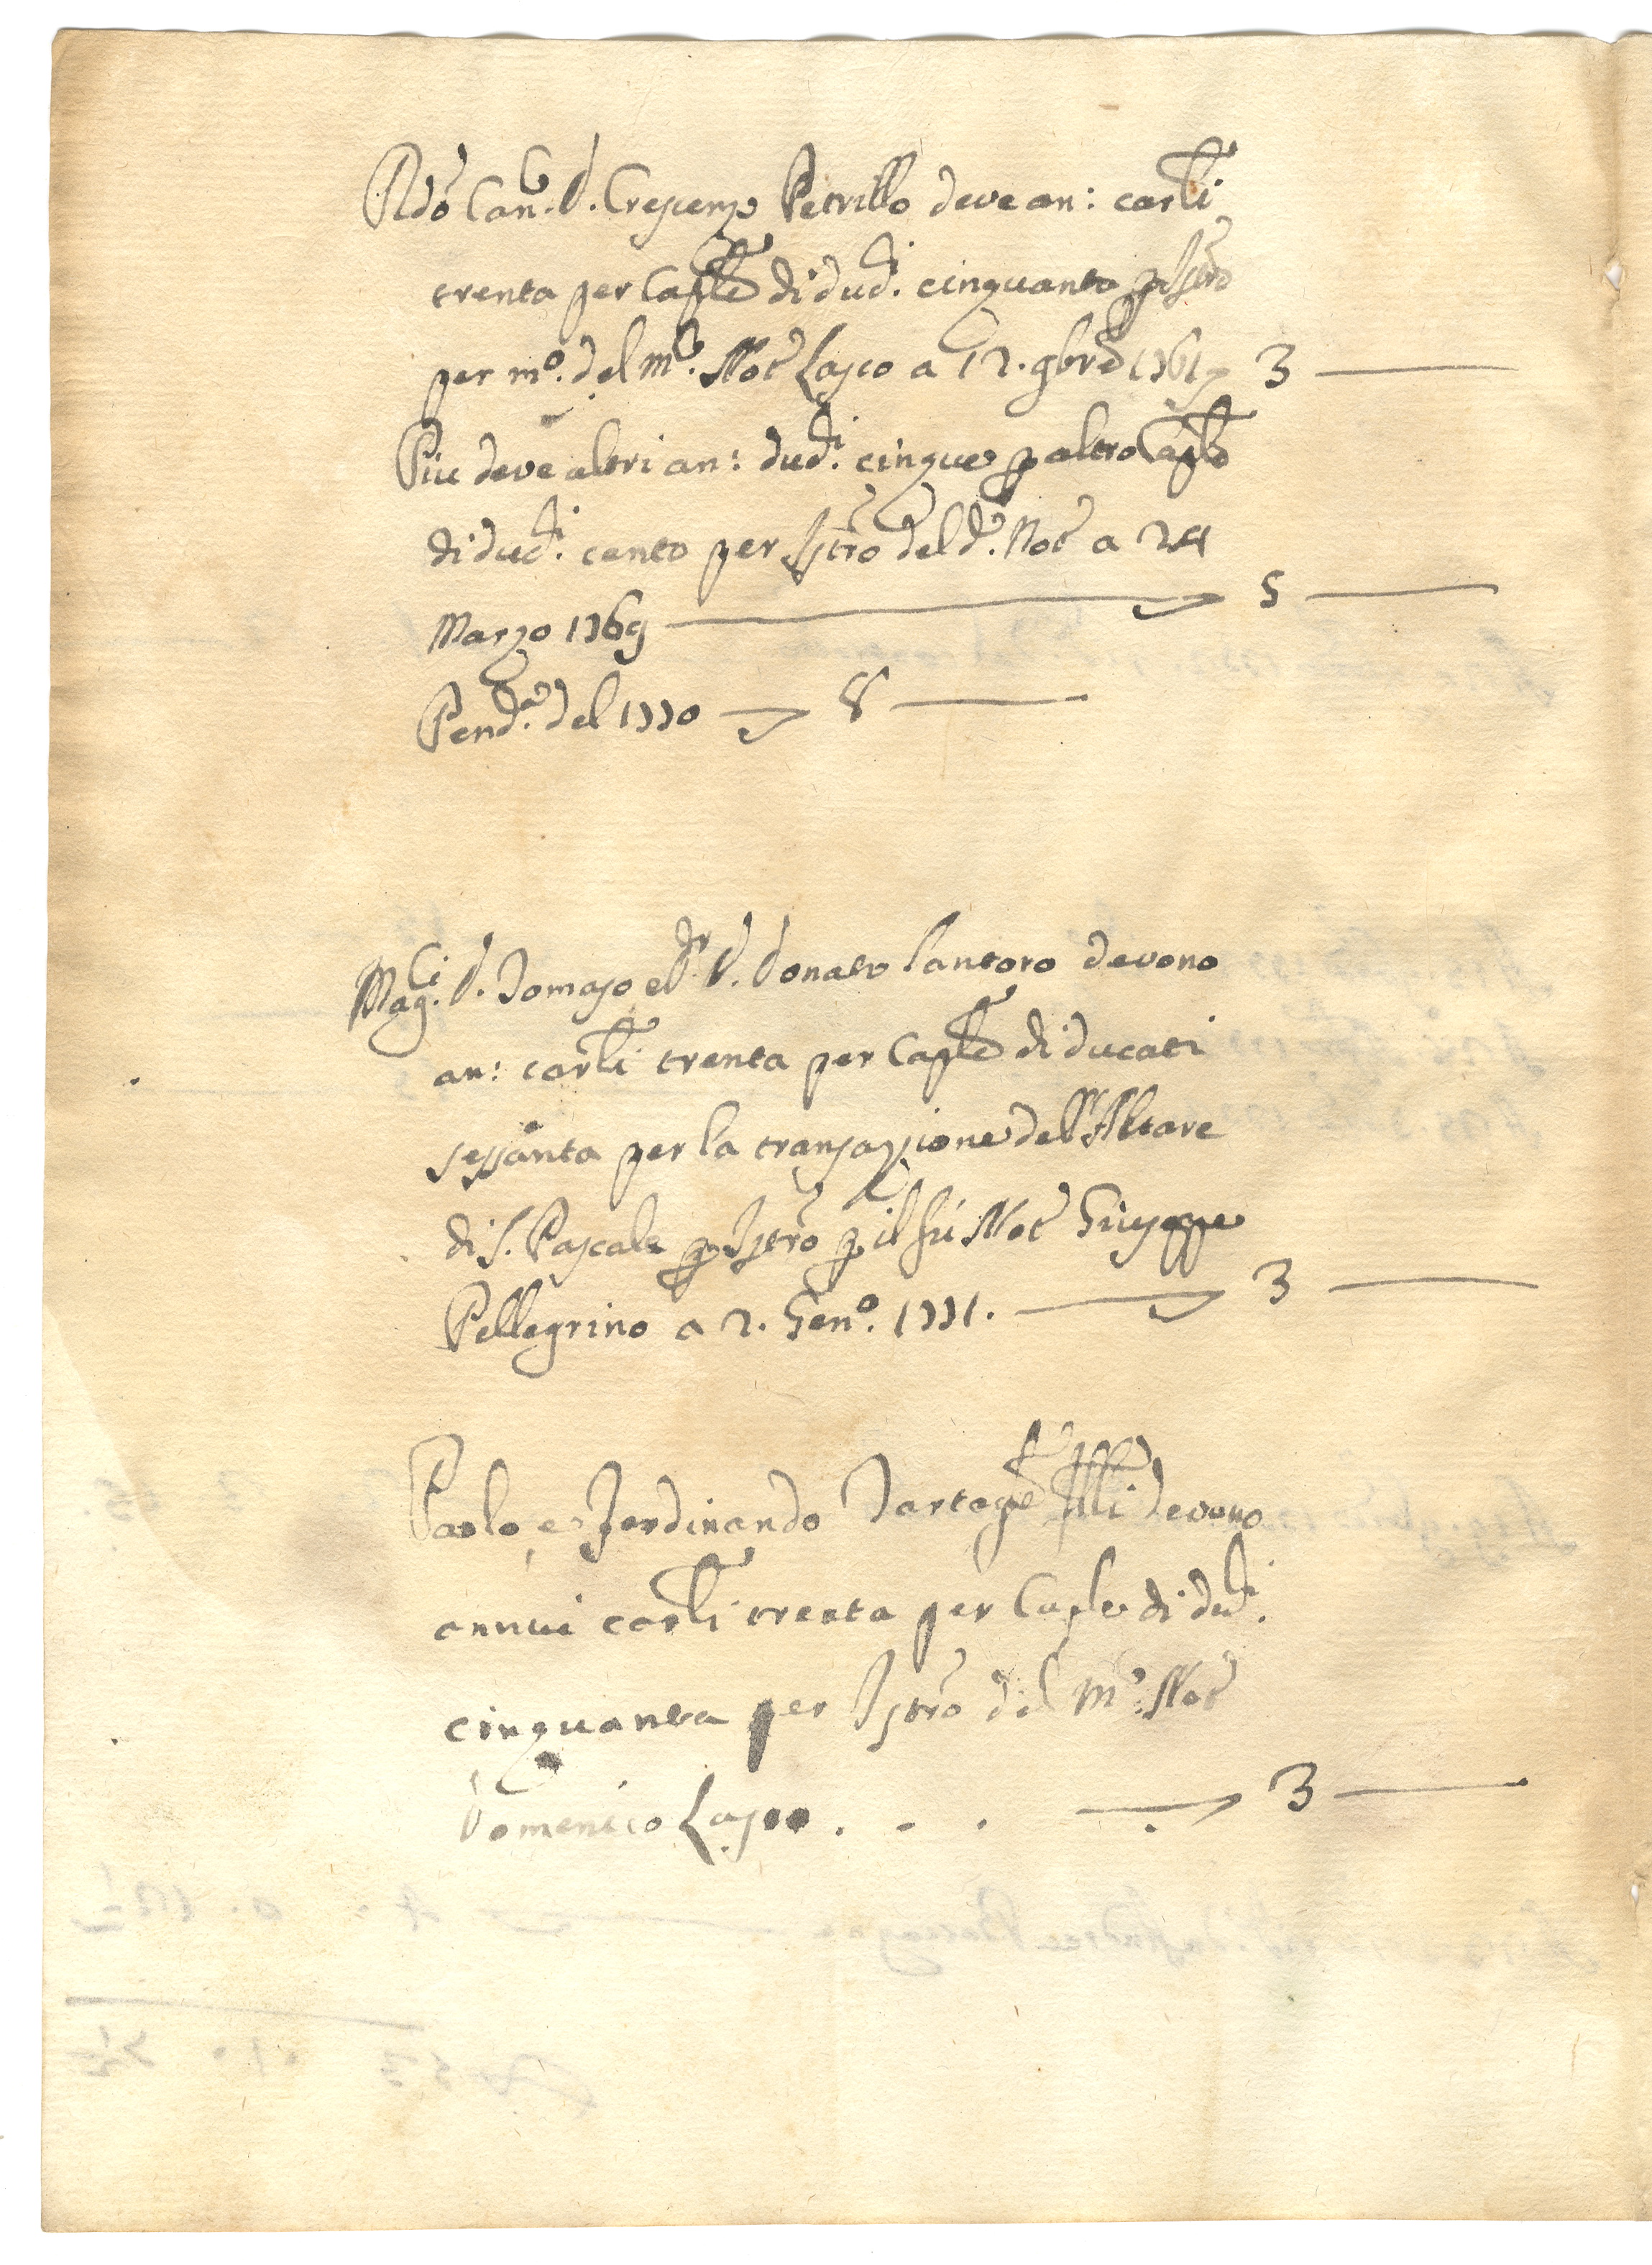 Rdo Can.co D. Crescenzo Petrillo deve an: carli
trenta per Caple di duc.ti cinquanta p Istro
per mo. del m.co Not Lasco a 12. 9bre 1761 3
Piu deve altri an: duc.ti cinque p altro Caple
di duc.ti cento per Istro del do. Not a 24
Marzo 1769 5
Pend.a del 1770 8
Mag.ci D. Tomaso e Dr D. Donato Santoro devono
an: carli trenta per Caple di ducati
sessanta per la transazzione dell'Altare
di S. Pascale p Istro p il fù Not Giuseppe
Pellegrino a 2. Geno. 1771. 3
Paolo, e Ferdinando flli devono
annui carli trenta per Caple di duc.ti
cinquanta per Istro del m.co Not
Domenico Lasco . . . 3